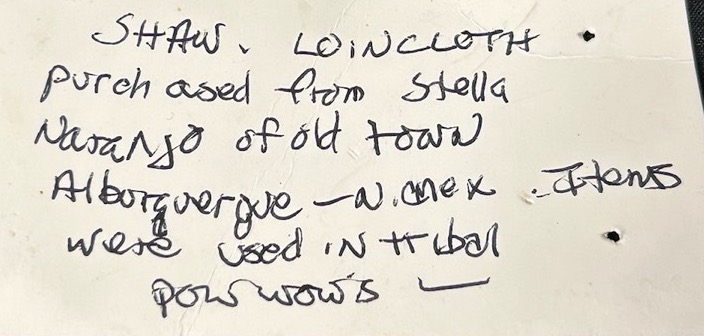 SHAW. LOINCLOTH
purchased from Stella
Naranjo of old town
Alborquerque - N. Mex. Items
were used in tribal
pow wow's —